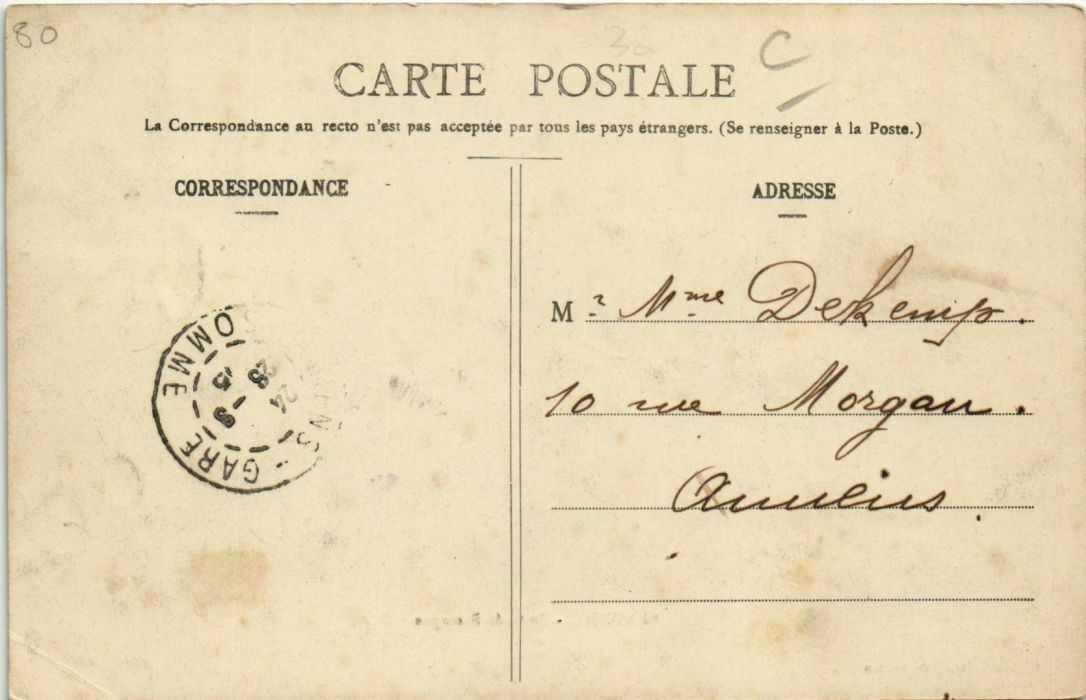 80
C
CARTE POSTALE
La Correspondance au recto n'est pas acceptée par tous les pays étrangers. (Se renseigner à la Poste.)
CORRESPONDANCE
ADRESSE
M r Mme Dekemp.
10 rue Morgan.
Amiens.
GARE
OMME